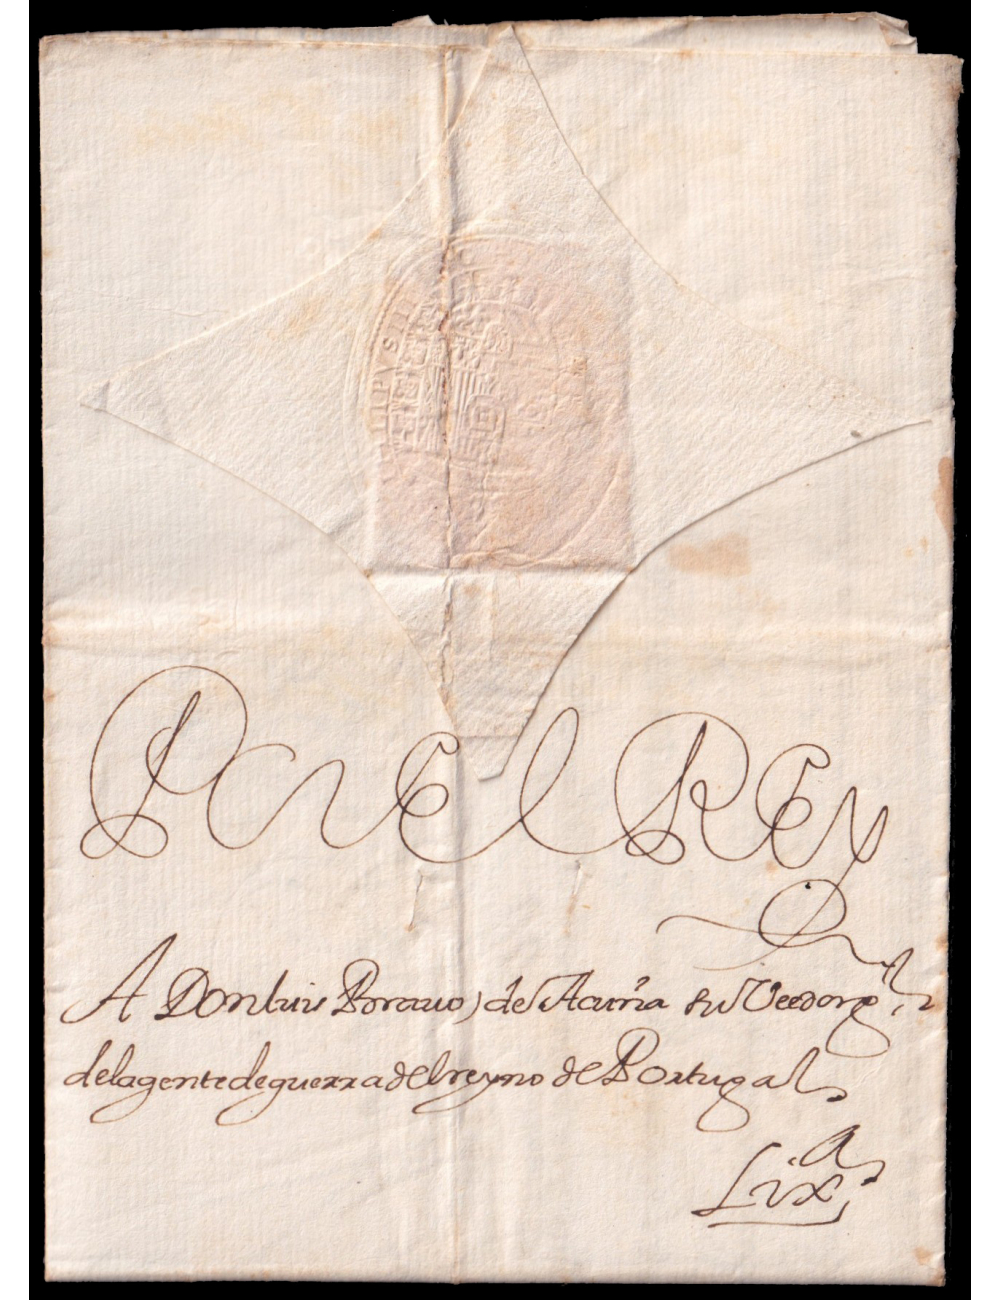 IPVS III
Por el Rey
A Don luis Brauo de Acuña su Veedor g.l
de la gente de guerra del reyno de Portugal
Lix.a